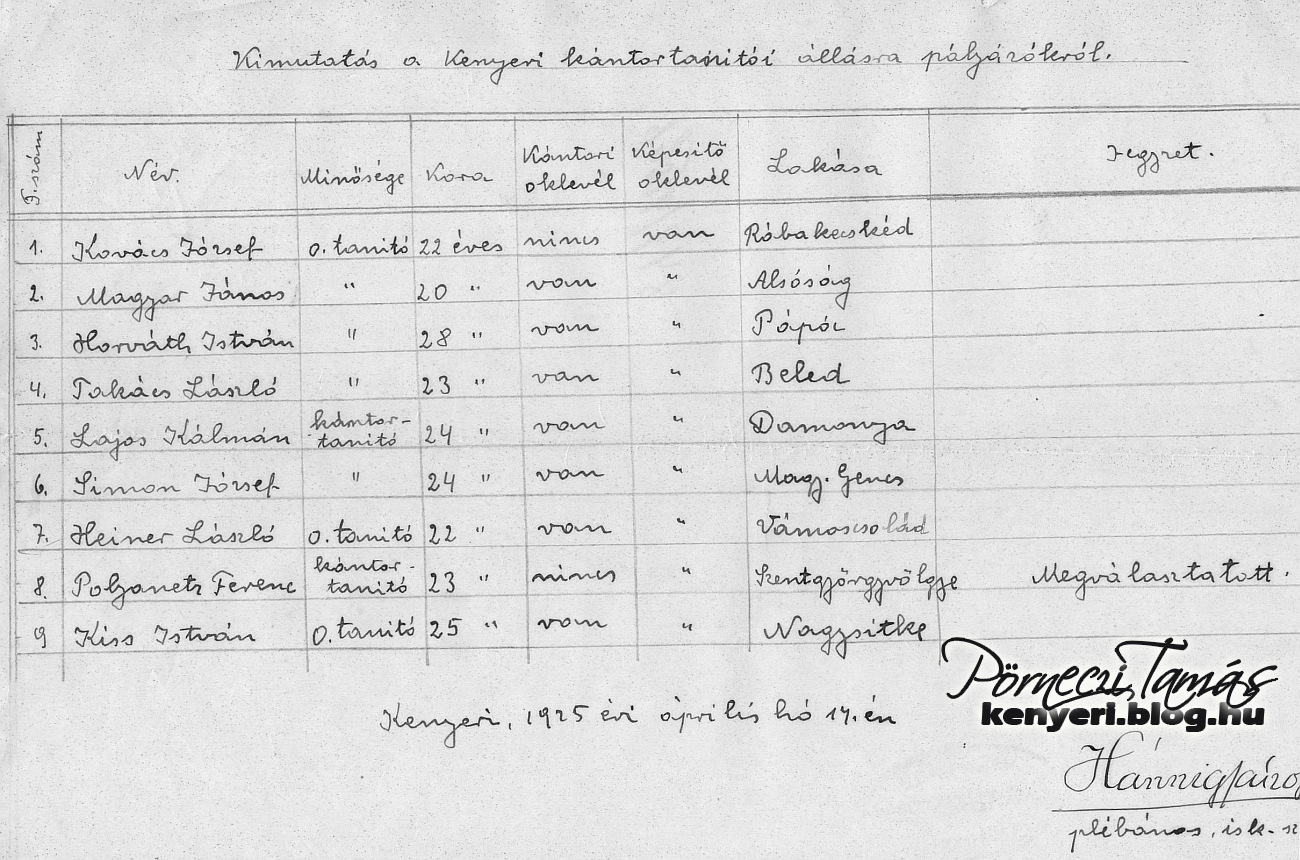 Kimutatás a Kenyeri kántortanitói állásra pályázókról.
F. szám Név. Minősége Kora Kántori oklevél Képesitő oklevél Lakása Jegyzet.
1. Kovács József o. tanitó 22 éves nincs van Rábakecskéd
2. Magyar János " 20 " van " Alsóság
3. Horváth István " 28 " van " Pápóc
4. Takács László " 23 " van " Beled
5. Lajos Kálmán kántor-tanitó 24 " van " Damonya
6. Simon József " 24 " van " Magy. Gencs
7. Heiner László o. tanitó 22 " van " Vámoscsalád
8. Polyanetz Ferenc kántor-tanitó 23 " nincs " Szentgyörgyvölgye Megválasztatott.
9 Kiss István o. tanitó 25 " van " Nagysitke
Kenyeri, 1925 évi április hó 17.én
Pörneczi Tamás
kenyeri.blog.hu
plébános, isk. sz